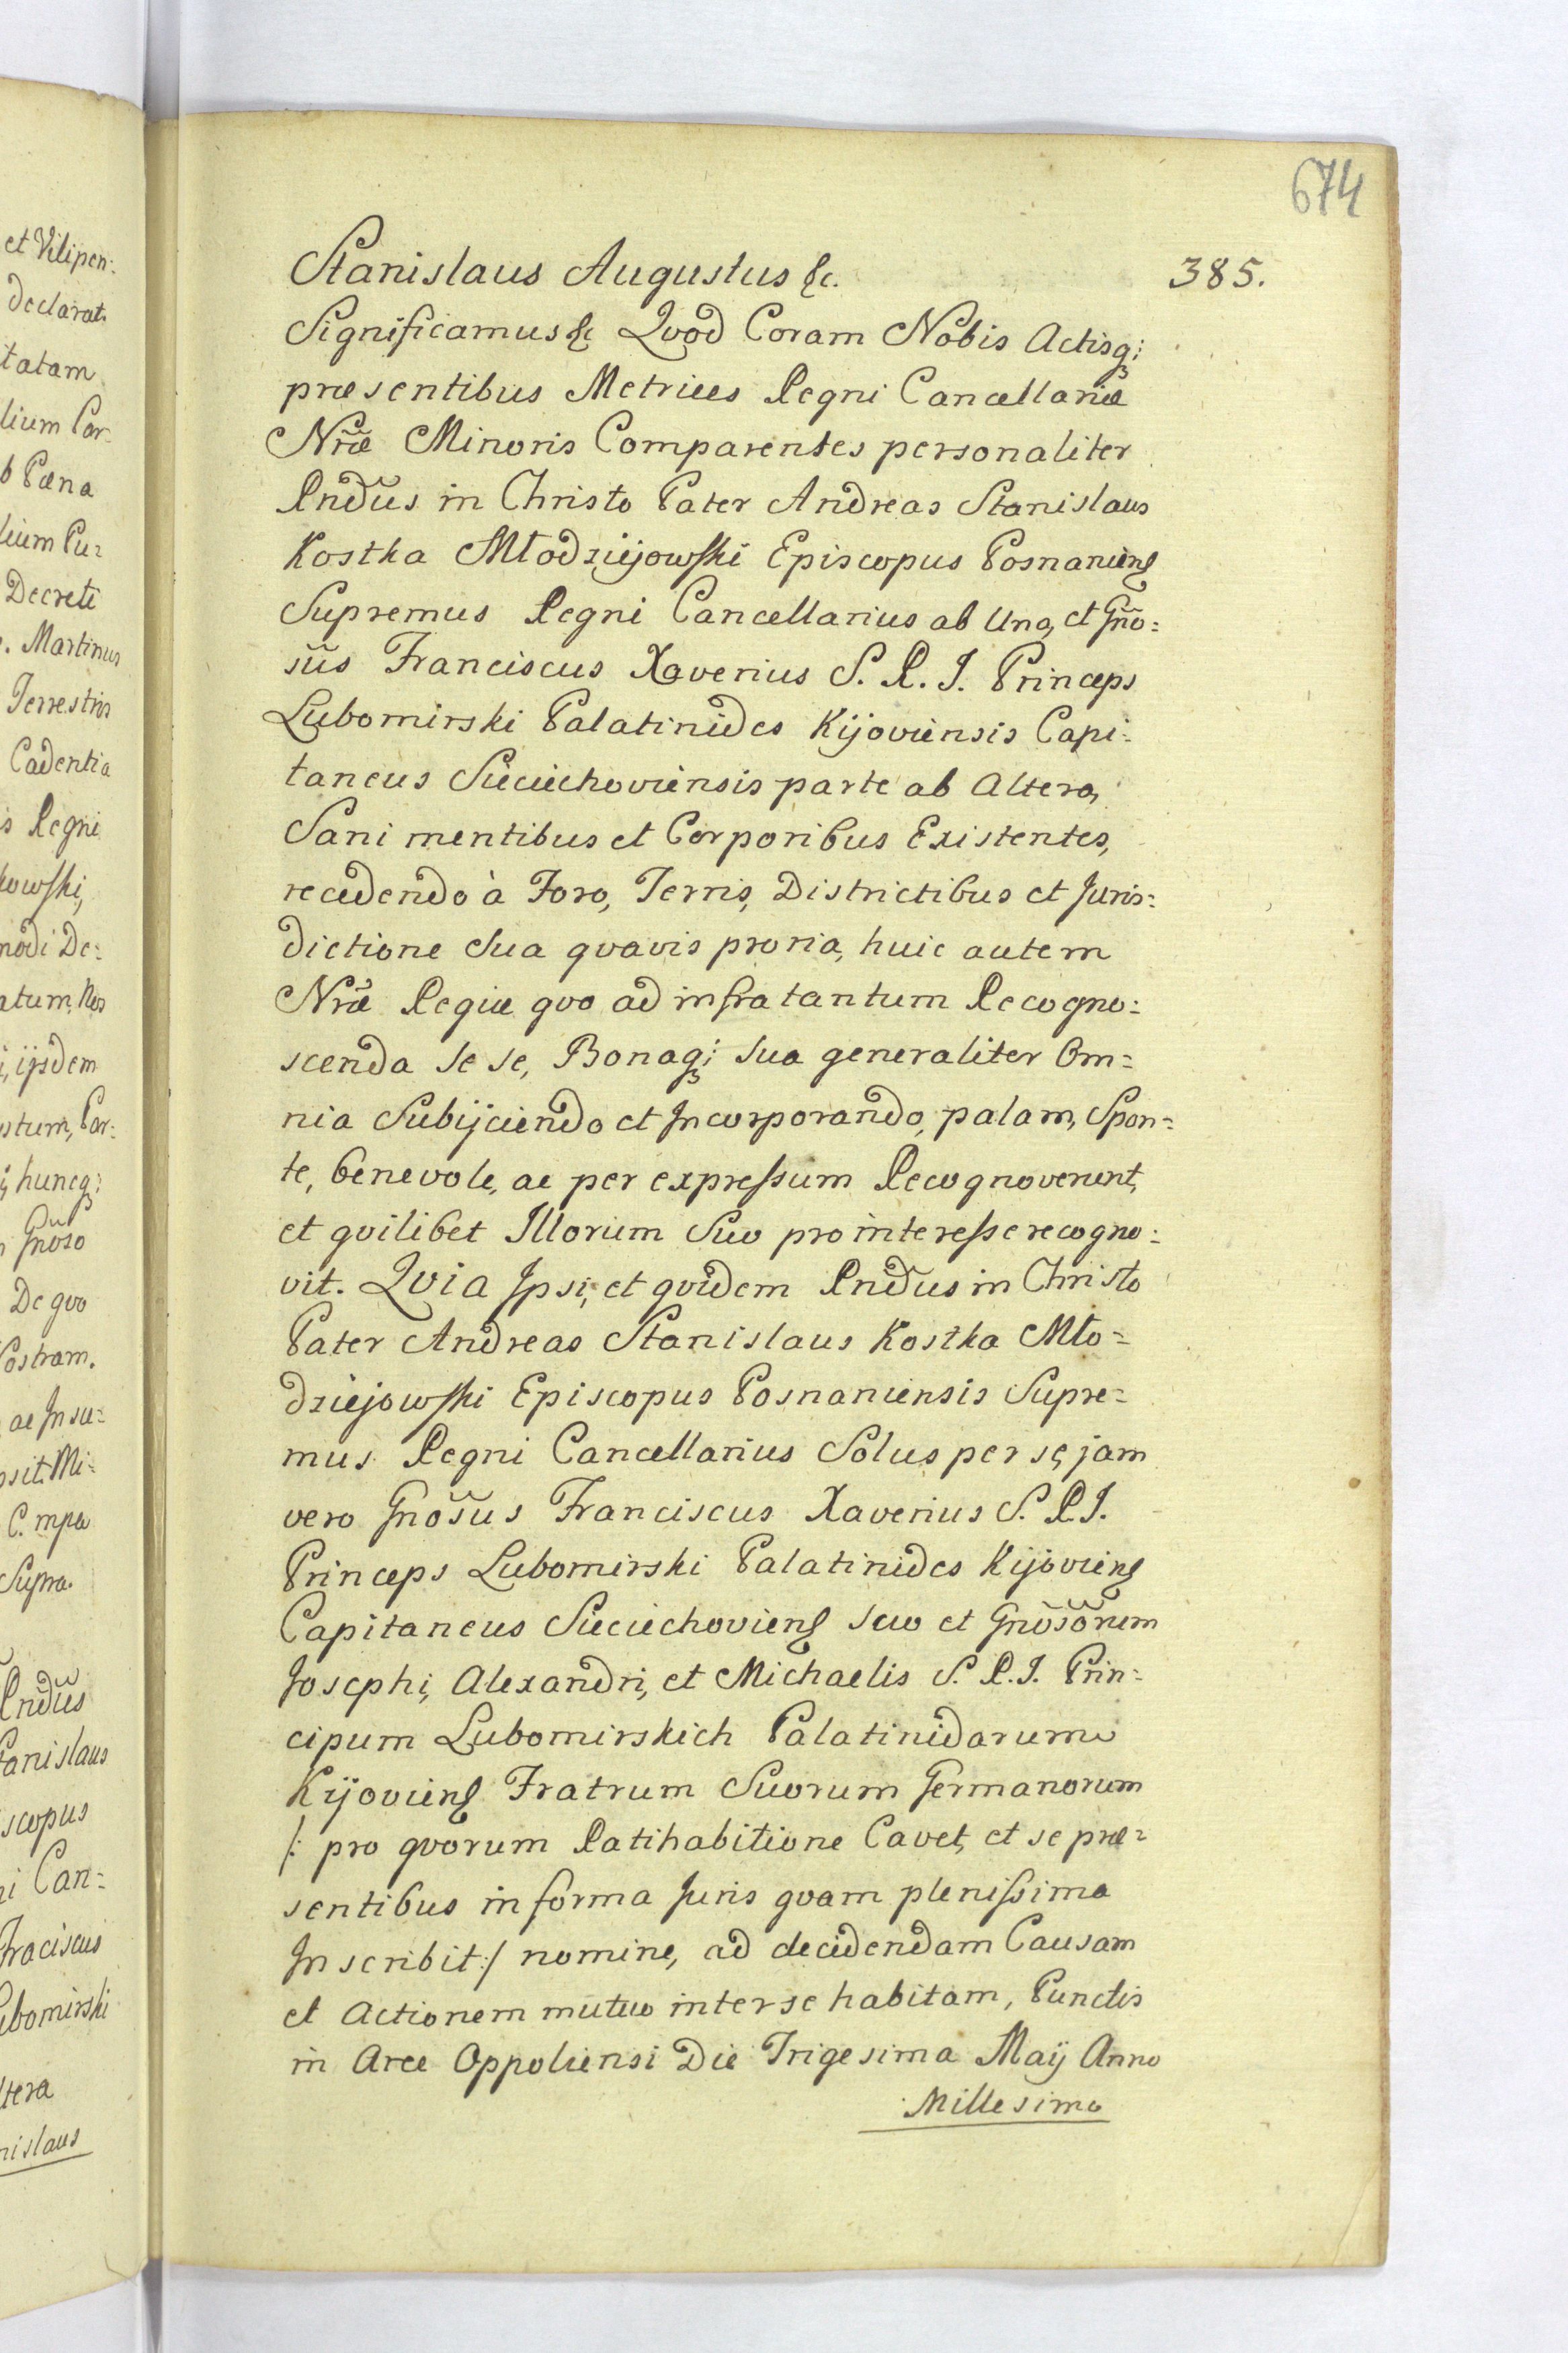 674
385.
Stanislaus Augustus &c.
Significamus &c Qvod Coram Nobis Actisq;
præsentibus Metrices Regni Cancellariæ
Nr̃æ Minoris Comparentes personaliter
Rnd̃us in Christo Pater Andreas Stanislaus
Kostka Młodziejowski Episcopus Posnaniens
Supremus Regni Cancellarius ab Una, et Gño=
sũs Franciscus Xaverius S. R. I. Princeps
Lubomirski Palatinides Kijoviensis Capi=
taneus Sieciechoviensis parte ab Altera,
Sani mentibus et Corporibus Existentes,
recedendo à Foro, Terris, Districtibus et Juris=
dictione Sua qvavis proria, huic autem
Nr̃æ Regiæ qvo ad infra tantum Recogno=
scenda se se, Bonaq; sua generaliter Om=
nia Subijciendo et Incorporando, palam, Spon=
te, benevole, ac per expressum Recognoverunt,
et qvilibet Illorum Suo pro interesse recogno=
vit. Qvia Ipsi, et qvidem Rnd̃us in Christo
Pater Andreas Stanislaus Kostka Mło=
dziejowski Episcopus Posnaniensis Supre=
mus Regni Cancellarius Solus per se, jam
vero Gnõsus Franciscus Xaverius S. R. I.
Princeps Lubomirski Palatinides Kijoviens
Capitaneus Sieciechoviens suo et Gnõsõrum
Josephi, Alexandri, et Michaelis S. R. I. Prin=
cipum Lubomirskich Palatinidarum
Kijoviens Fratrum Suorum Germanorum
/: pro qvorum Ratihabitione Cavet, et se præ=
sentibus in forma Juris qvam plenissima
Inscribit :/ nomine, ad decidendam Causam
et Actionem mutuo inter se habitam, Punctis
in Arce Oppoliensi Die Trigesima Maij Anno
Millesimo
et Vilipen=
declarat.
tatam
lium Par=
b Pæna
lium Pu=
Decreti
. Martinus
Terrestris
Cadentia
s Regni
kowski,
modi De=
atum, Nos
i, ijsdem
stum, Par=
huncq;
Gnõso
De qvo
Nostram.
ac Insu=
sit. Mi=
C. mpa
Supra.
Rnd̃us
Stanislaus
scopus
i Can=
Fraciscus
ubomirski
ltera
nislaus